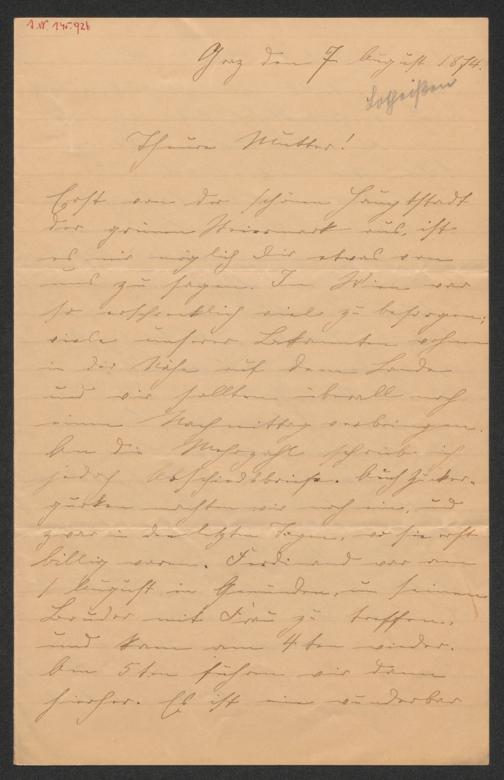 I.N. 145.926
Graz den 7 August 1874.
Lotheißen
Theure Mutter!
Erst von der schönen Hauptstadt
der grünen Steiermark aus, ist
es mir möglich Dir etwas von
uns zu sagen. In Wien war
so erschrecklich viel zu besorgen;
viele unserer Bekannten wohnen
in der Nähe auf dem Lande
und wir sollten überall noch
einen Nachmittag verbringen.
An die Mehrzahl schrieb ich
jedoch Abschiedsbriefe. Auch
gurken machten wir noch ein, und
zwar in den letzten Tagen, wo sie erst
billig waren. Ferdinand war am
1 August in Gmunden, um seinen
Bruder mit Frau zu treffen,
und kam am 4ten wieder.
Am 5ten fuhren wir dann
hierher. Es ist ein wunderbar